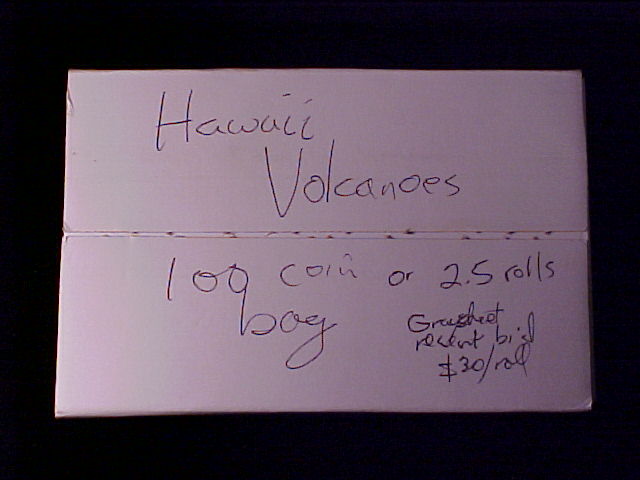 Hawaii
Volcanoes
100 coin or 2.5 rolls
bag
Greysheet
recent bid
$30/roll